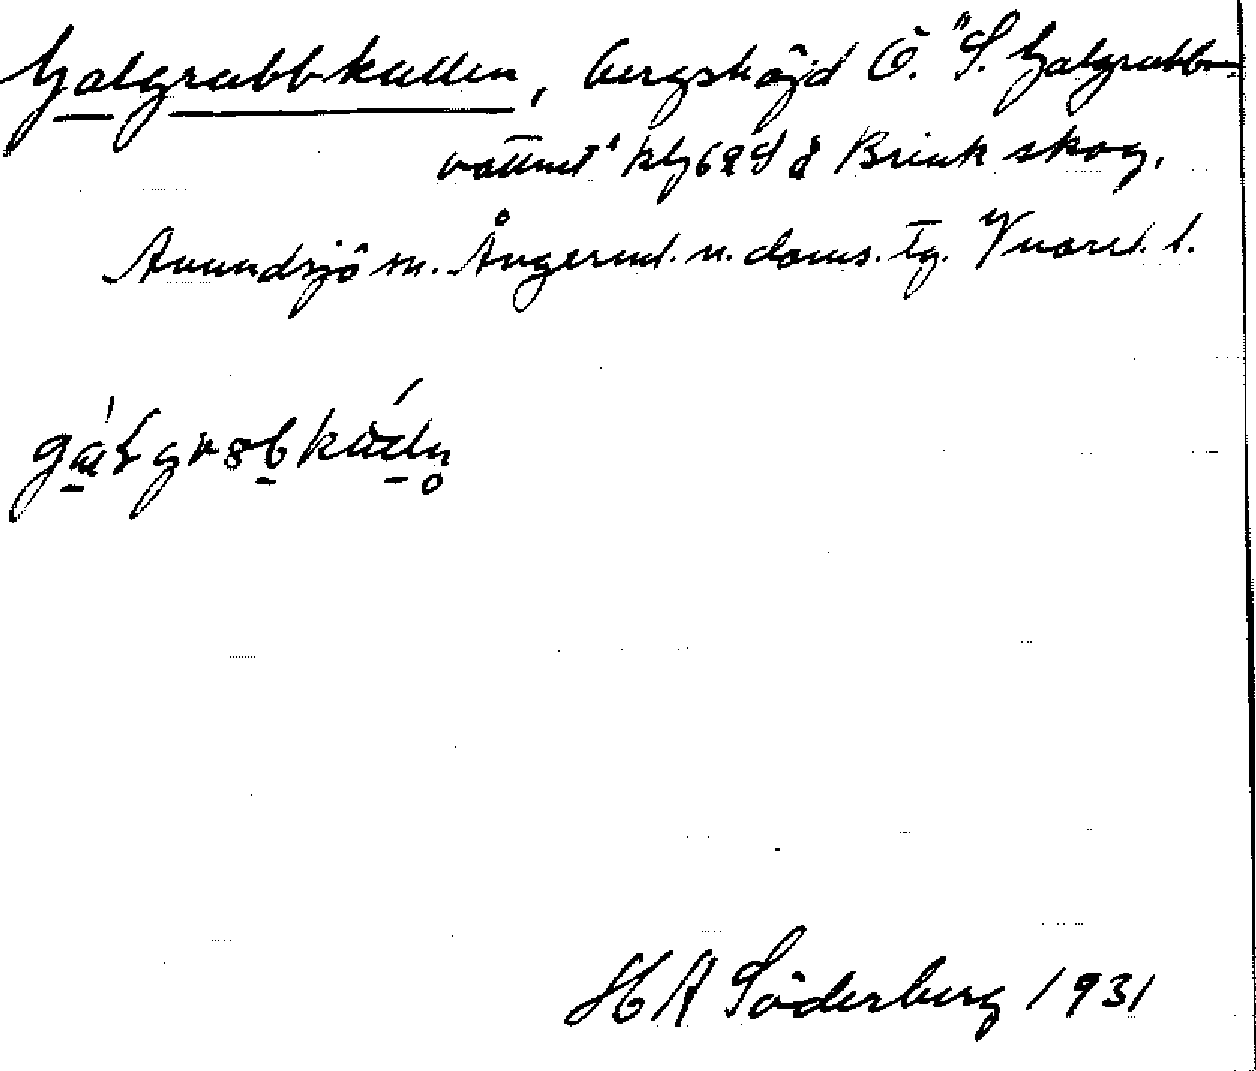 Galgrubbkullen, bergshöjd Ö. "S. Galgrubb-
vattnet" kbg 62 S å Brink skog.
Anundsjö sn. Ångerml. n. doms. Tg.
gálgrobkúln
H A Söderberg 1931